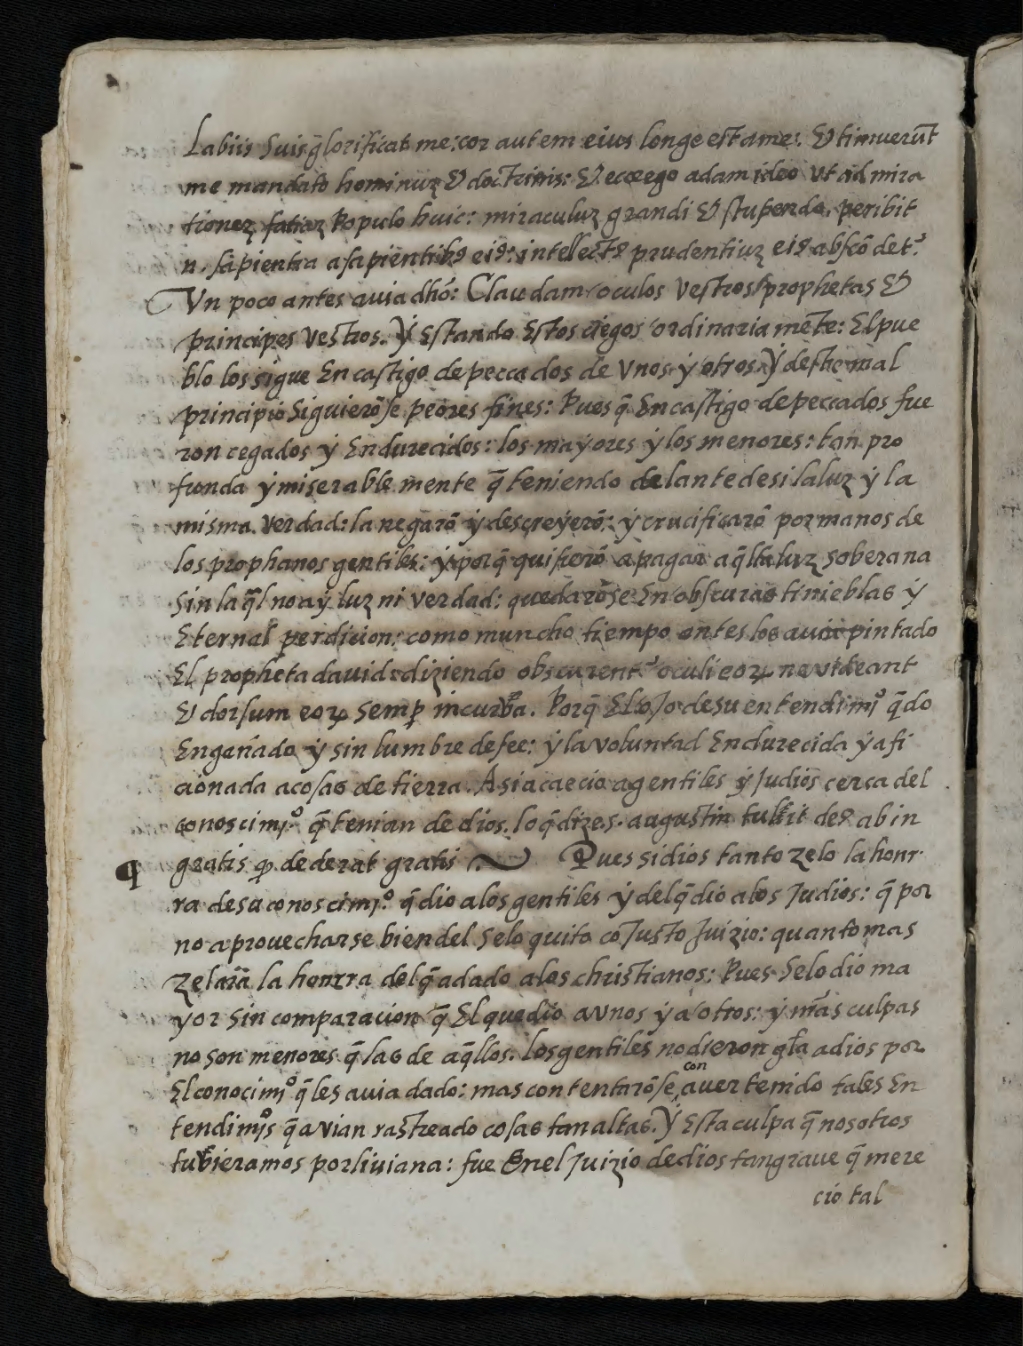 Labiis suis glorificat me: cor autem eius longe est a me: & timuerūt
me mandato hominuȝ & doctrinis: & ecce ego adam ideo vt admira
tioneȝ fatiaȝ Populo huic: miraculuȝ grandi & stupendo, peribit
n. sapientia a sapientibꝰ eiꝰ: intellectꝰ prudentiuȝ eiꝰ abscōdet᷑
Vn poco antes auia dhō: Claudam oculos vestros prophetas &
principes vestros. Ÿ Estando Estos çiegos ordinaria mēte: El pue
blo los sigue En castigo de peccados de vnos ÿ otros Ÿ de tho mal
principio Siguierōse peores fines: Pues q̄ En castigo de peccados fue
ron cegados ÿ Endurecidos: los maÿores ÿ los menores: tan pro
funda ÿ miserable mente q̄ teniendo delante de si la luz ÿ la
misma verdad: la negarō ÿ descreÿerō: ÿ crucificarō por manos de
los prophanos gentiles: ÿ porq̄ quisierō apagar aq̄lla luz soberana
Sin la q̄l no aÿ luz ni verdad: quedarōse En obscuras tinieblas ÿ
Eternal perdicion: como muncho tiempo antes los auia pintado
El propheta dauid diziendo obscurent᷑ oculi eoꝝ ne videant
& dorsum eoꝝ semp̄ incurba. Porq̄ El ojo de su entendimjº q̄do
Engañado ÿ sin lumbre de fee: ÿ la voluntad Endurecida ÿ afi
cionada a cosas de tierra. Asi acaecio a gentiles ÿ Judios cerca del
conoscimjº q̄ tenian de dios. lo q̄ dize s. augustin tullit deꝰ ab in
gratis ꝙ dederat gratis
¶ Pues si dios tanto zelo la honr
ra de su conoscimjº q̄ dio a los gentiles ÿ del q̄ dio a los Judios: q̄ por
no aprouecharse bien del Se lo quito cō Justo Juizio: quanto mas
Zelara la honrra del q̄ a dado a los christianos: Pues Se lo dio ma
yor Sin comparacion q̄ El que dio a vnos ÿ a otros: ÿ más culpas
no son menores q̄ las de aq̄llos. los gentiles no dieron glā a dios por
El conocimjº q̄ les auia dado: mas contentarōse con auer tenido tales En
tendimjºs q̄ avian rastreado cosas tan altas. Ÿ Esta culpa q̄ nosotros
tubieramos por liuiana: fue En el Juizio de dios tan graue q̄ mere
cio tal